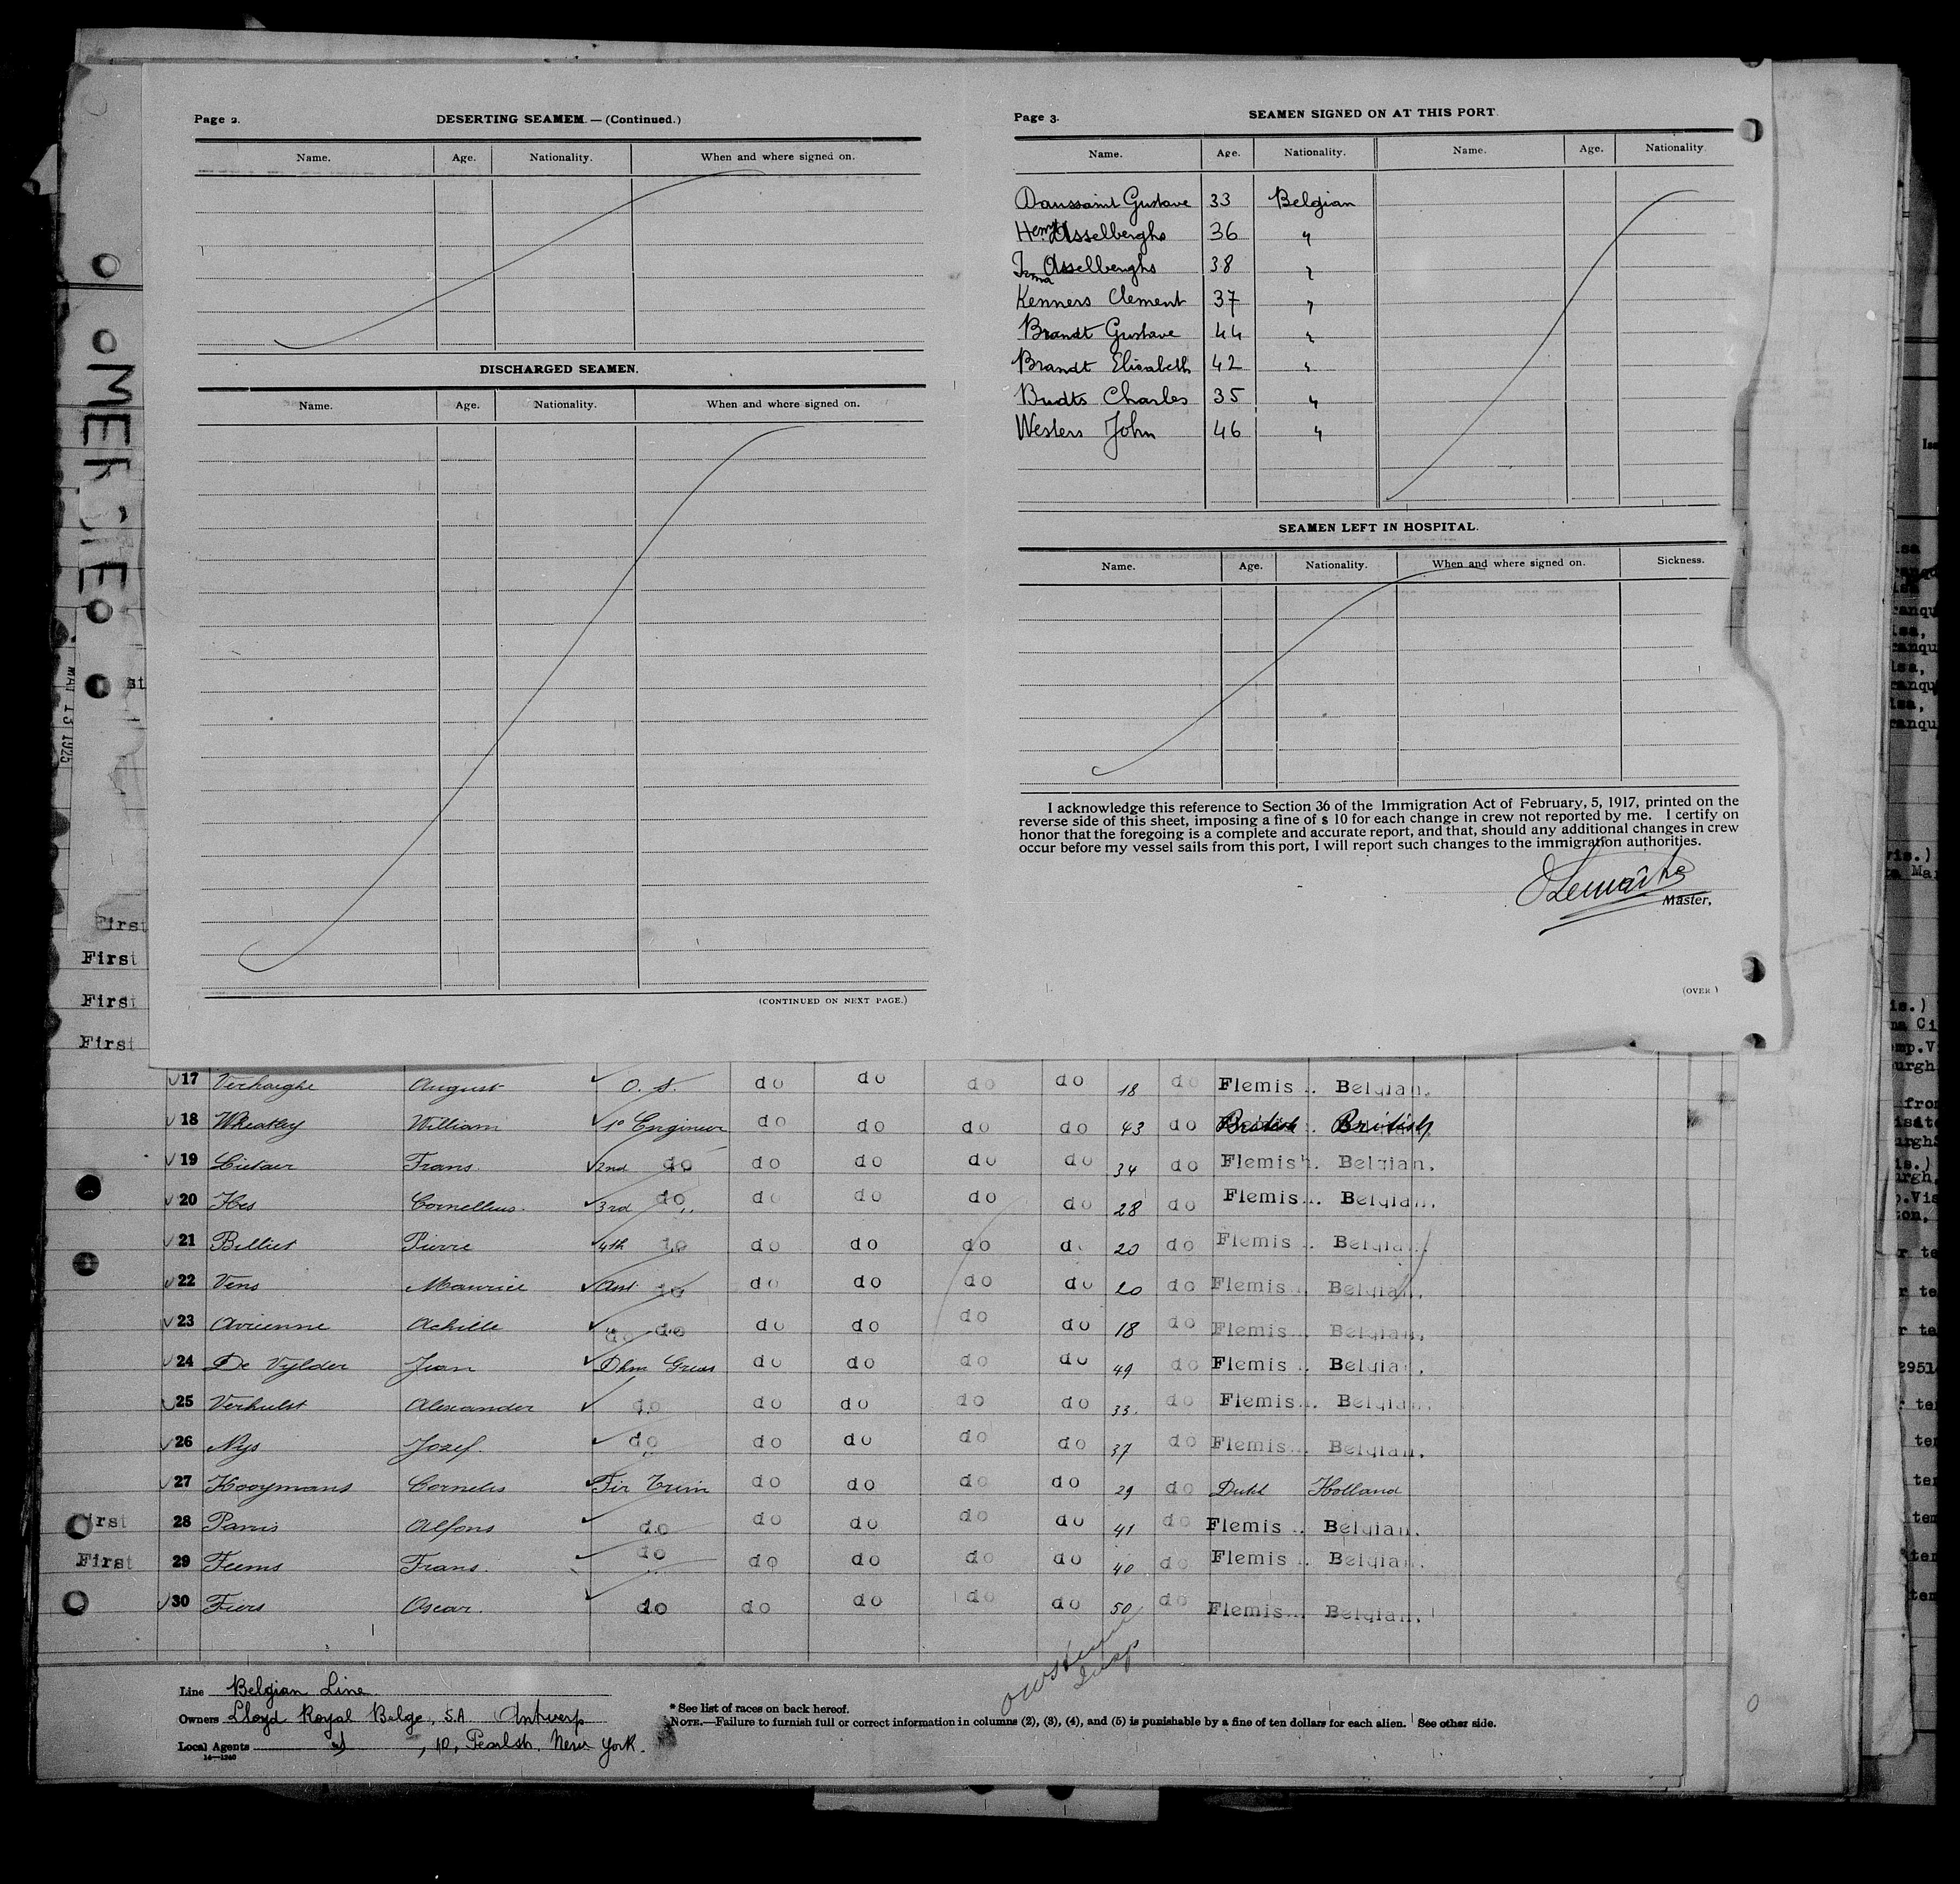 Page 2. DESERTING SEAMEM. — (Continued.)
Name. Age. Nationality. When and where signed on.
DISCHARGED SEAMEN.
Name. Age. Nationality. When and where signed on.
(CONTINUED ON NEXT PAGE.)
Page 3. SEAMEN SIGNED ON AT THIS PORT
Name. Age. Nationality. Name. Age. Nationality.
Daussaint Gustave 33 Belgian
Henri Asselberghs 36 "
Irma Asselberghs 38 "
Kenners Clement 37 "
Brandt Gustave 44 "
Brandt Elisabeth 42 "
Budts Charles 35 "
Westers John 46 "
SEAMEN LEFT IN HOSPITAL.
Name. Age. Nationality. When and where signed on. Sickness.
I acknowledge this reference to Section 36 of the Immigration Act of February, 5, 1917, printed on the
reverse side of this sheet, imposing a fine of $ 10 for each change in crew not reported by me. I certify on
honor that the foregoing is a complete and accurate report, and that, should any additional changes in crew
occur before my vessel sails from this port, I will report such changes to the immigration authorities.
Master,
(OVER)
MAY 13 1925
First
First
First
First
17 Verhaeghe August O. S. do do do do 18 do Flemis.. Belgian.
18 Wheatley William 1° Engineer do do do do 43 do British British
19 Lietaer Frans. 2nd do do do do do 34 do Flemish. Belgian.
20 Hes Cornelleus. 3rd do do do do do 28 do Flemis.. Belgian.
21 Billiet Pierre 4th do do do do d. 20 do Flemis.. Belgia..
22 Vens Maurice Asst do do do do do 20 do Flemis.. Belgian.
23 Avrienne Achille do do do do do do 18 do Flemis.. Belgian.
24 De Vylder Jean Dkm Greas do do do do 49 do Flemis.. Belgia..
25 Verhulst Alexander do do do do do 33. do Flemis.. Belgian.
26 Nys Jozef. do do do do do 37 do Flemis.. Belgian.
27 Hooymans Cornelis Fir Trim do do do do 29 do Dutch Holland
First 28 Parris Alfons do do do do do 41 do Flemis.. Belgian.
First 29 Feems Frans. do do do do do 40 do Flemis.. Belgian.
30 Fiers Oscar. do do do do do 50 do Flemis.. Belgian.
Line Belgian Line
Owners Lloyd Royal Belge, S.A. Antwerp
Local Agents , 10, Pearlstr. New York.
16—1240
* See list of races on back hereof.
NOTE.—Failure to furnish full or correct information in columns (2), (3), (4), and (5) is punishable by a fine of ten dollars for each alien. See other side.